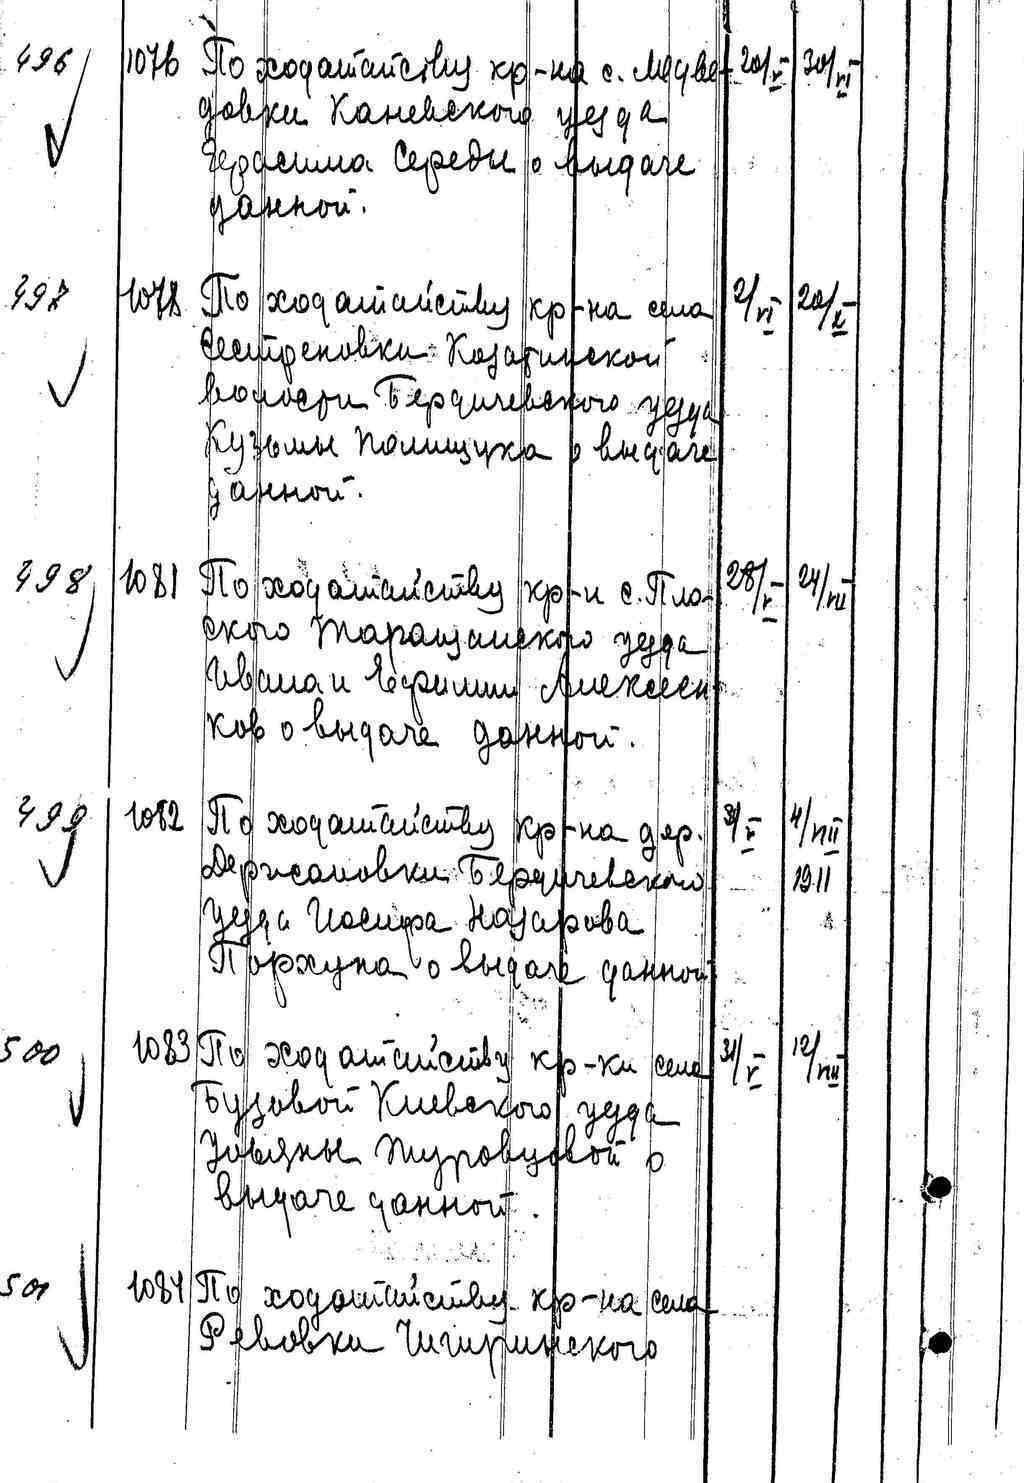 496 1076 По ходатайству кр-на с. Медве- 20/V 30/VI
довки Каневского уезда
Герасима Середы о выдаче
данной.
497 1078 По ходатайству кр-на села 2/VI 20/X
Сестреновки Козатинской
волости Бердичевского уезда
Кузьмы Полищука о выдаче
данной.
498 1081 По ходатайству кр-н с. Пло- 28/V 24/VII
ского Таращанского уезда
Ивана и Ефимии Алексеен-
ков о выдаче данной.
499 1082 По ходатайству кр-на дер. 31/V 4/VIII
Держановки Бердичевского 1911
уезда Иосифа Назарова
Порхуна о выдаче данной
500 1083 По ходатайству кр-ки села 31/V 12/VIII
Бузовой Киевского уезда
Ульяны Журовцовой о
выдаче данной.
501 1084 По ходатайству кр-на села
Ревовки Чигиринского